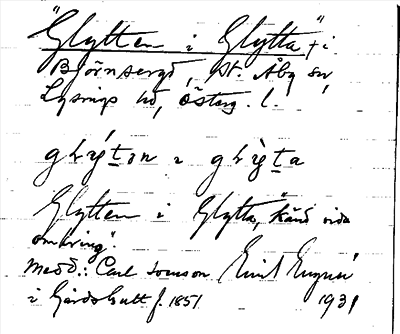 "Glytten i Glytta" i
Björnsergd, St. Åby sn
Lysings hd, Österg. l.
glýtən i glỳta
Glytten i Glytta, "känd vida
omkring".
Medd.: Carl Jonsson Emil
i Gårdshult f. 1851 1931